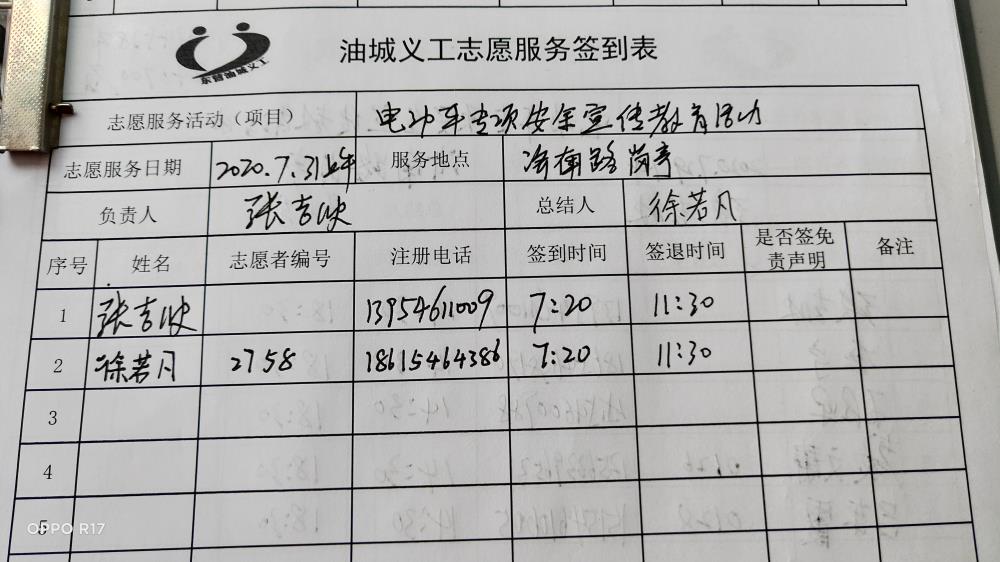 东营油城义工
油城义工志愿服务签到表
志愿服务活动（项目） 电动车专项安全宣传教育活动
志愿服务日期 2020.7.31上午 服务地点 路岗亭
负责人 张吉 总结人 徐若凡
序号 姓名 志愿者编号 注册电话 签到时间 签退时间 是否签免责声明 备注
1 张吉 13954611009 7:20 11:30
2 徐若凡 2758 18615464386 7:20 11:30
3
4
5
OPPO R17